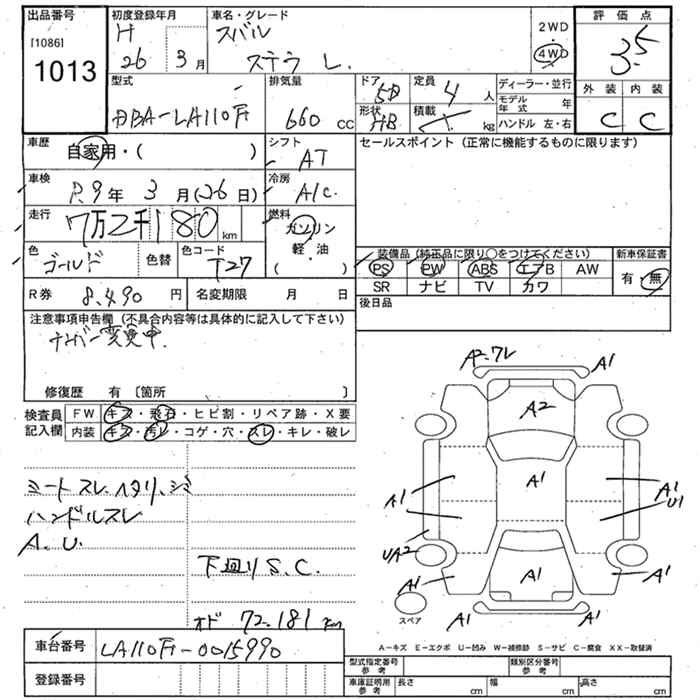 出品番号
[1086]
1013
初度登録年月
H
26 3月
車名・グレード
スバル
ステラ L.
2WD
・
4WD
評価点
3.5
外装 内装
C C
型式
DBA-LA110F
排気量
660 CC
ドア 5D
形状 HB
定員 4 人
積載 kg
ディーラー・並行
モデル年式 年
ハンドル 左・右
車歴
自家用・( )
シフト
AT
セールスポイント (正常に機能するものに限ります)
車検
R.9年 3月(26日)
冷房
A/C.
走行
7万2千180km
燃料
ガソリン
軽・油
( )
色
ゴールド
色替
色コード
T27
装備品 (純正品に限り○をつけてください)
PS PW ABS エアB AW
SR ナビ TV カワ
新車保証書
有・無
R券 8.490 円
名変期限 月 日
後日品
注意事項申告欄 (不具合内容等は具体的に記入して下さい)
ナンバー変更中.
修復歴 有 〔箇所 〕
検査員記入欄
FW キズ・飛石・ヒビ割・リペア跡・X要
内装 キズ・汚レ・コゲ・穴・スレ・キレ・破レ
シートスレ.ヘタリ.シミ
ハンドルスレ
A.U.
下廻りS.C.
オド 72.181km
A2-ワレ A1
A2
A1
A1
A1
U1
UA2
A1
A1
A1
A1 A1
スペア
A-キズ E-エクボ U-凹み W-補修跡 S-サビ C-腐食 XX-取替済
車台番号 LA110F-0015990
登録番号
型式指定番号 参考
類別区分番号 参考
車庫証明用 参考
長さ cm 幅 cm 高さ cm